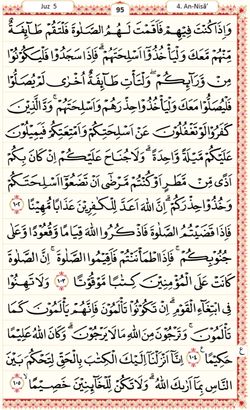 Juz 5
95
4. An-Nisā'
وَاِذَا كُنْتَ فِيْهِمْ فَاَقَمْتَ لَهُمُ الصَّلٰوةَ فَلْتَقُمْ طَآىِٕفَةٌ
مِّنْهُمْ مَّعَكَ وَلْيَأْخُذُوْٓا اَسْلِحَتَهُمْ ۗ فَاِذَا سَجَدُوْا فَلْيَكُوْنُوْا
مِنْ وَّرَاۤىِٕكُمْۖ وَلْتَأْتِ طَاۤىِٕفَةٌ اُخْرٰى لَمْ يُصَلُّوْا
فَلْيُصَلُّوْا مَعَكَ وَلْيَأْخُذُوْا حِذْرَهُمْ وَاَسْلِحَتَهُمْ ۚ وَدَّ الَّذِيْنَ
كَفَرُوْا لَوْ تَغْفُلُوْنَ عَنْ اَسْلِحَتِكُمْ وَاَمْتِعَتِكُمْ فَيَمِيْلُوْنَ
عَلَيْكُمْ مَّيْلَةً وَّاحِدَةً ۗ وَلَا جُنَاحَ عَلَيْكُمْ اِنْ كَانَ بِكُمْ
اَذًى مِّنْ مَّطَرٍ اَوْ كُنْتُمْ مَّرْضٰٓى اَنْ تَضَعُوْٓا اَسْلِحَتَكُمْ
وَخُذُوْا حِذْرَكُمْ ۗ اِنَّ اللّٰهَ اَعَدَّ لِلْكٰفِرِيْنَ عَذَابًا مُّهِيْنًا ١٠٢
فَاِذَا قَضَيْتُمُ الصَّلٰوةَ فَاذْكُرُوا اللّٰهَ قِيَامًا وَّقُعُوْدًا وَّعَلٰى
جُنُوْبِكُمْ ۚ فَاِذَا اطْمَأْنَنْتُمْ فَاَقِيْمُوا الصَّلٰوةَ ۚ اِنَّ الصَّلٰوةَ
كَانَتْ عَلَى الْمُؤْمِنِيْنَ كِتٰبًا مَّوْقُوْتًا ١٠٣ وَلَا تَهِنُوْا
فِى ابْتِغَاۤءِ الْقَوْمِ ۗ اِنْ تَكُوْنُوْا تَأْلَمُوْنَ فَاِنَّهُمْ يَأْلَمُوْنَ كَمَا
تَأْلَمُوْنَ ۚ وَتَرْجُوْنَ مِنَ اللّٰهِ مَا لَا يَرْجُوْنَ ۗ وَكَانَ اللّٰهُ عَلِيْمًا
حَكِيْمًا ١٠٤ اِنَّآ اَنْزَلْنَآ اِلَيْكَ الْكِتٰبَ بِالْحَقِّ لِتَحْكُمَ بَيْنَ
النَّاسِ بِمَآ اَرٰىكَ اللّٰهُ ۗ وَلَا تَكُنْ لِّلْخَاۤىِٕنِيْنَ خَصِيْمًا ١٠٥